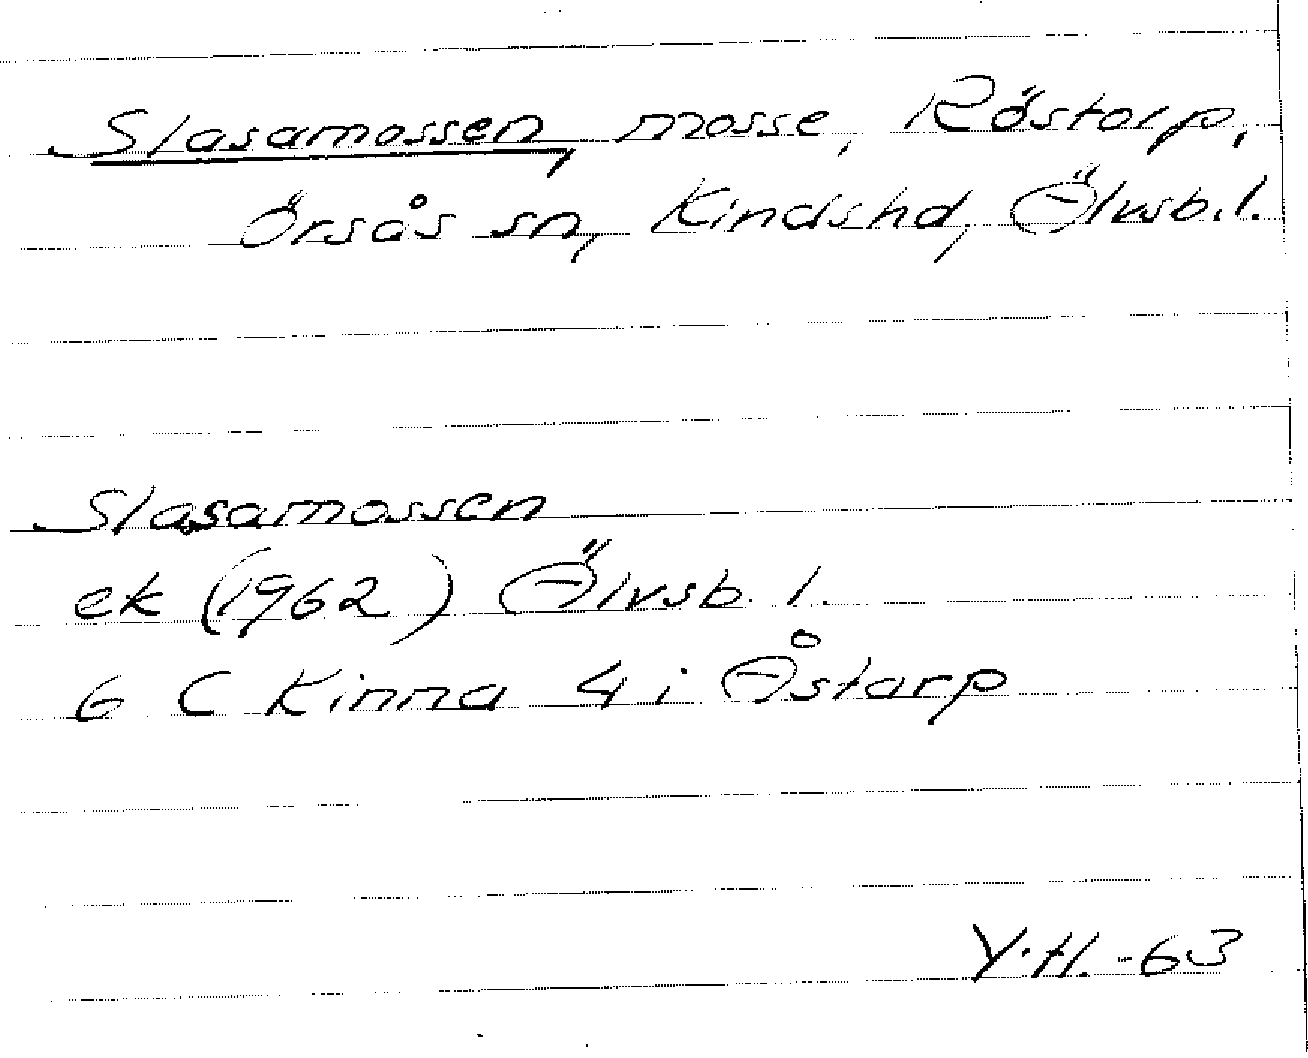 Slasamossen, mosse, Röstorp,
Örsås sn, Kindshd, Älvsb.l.
Slasamossen
ek (1962) Älvsb. l.
6 C Kinna 4 i Åstarp
Y.H. -63